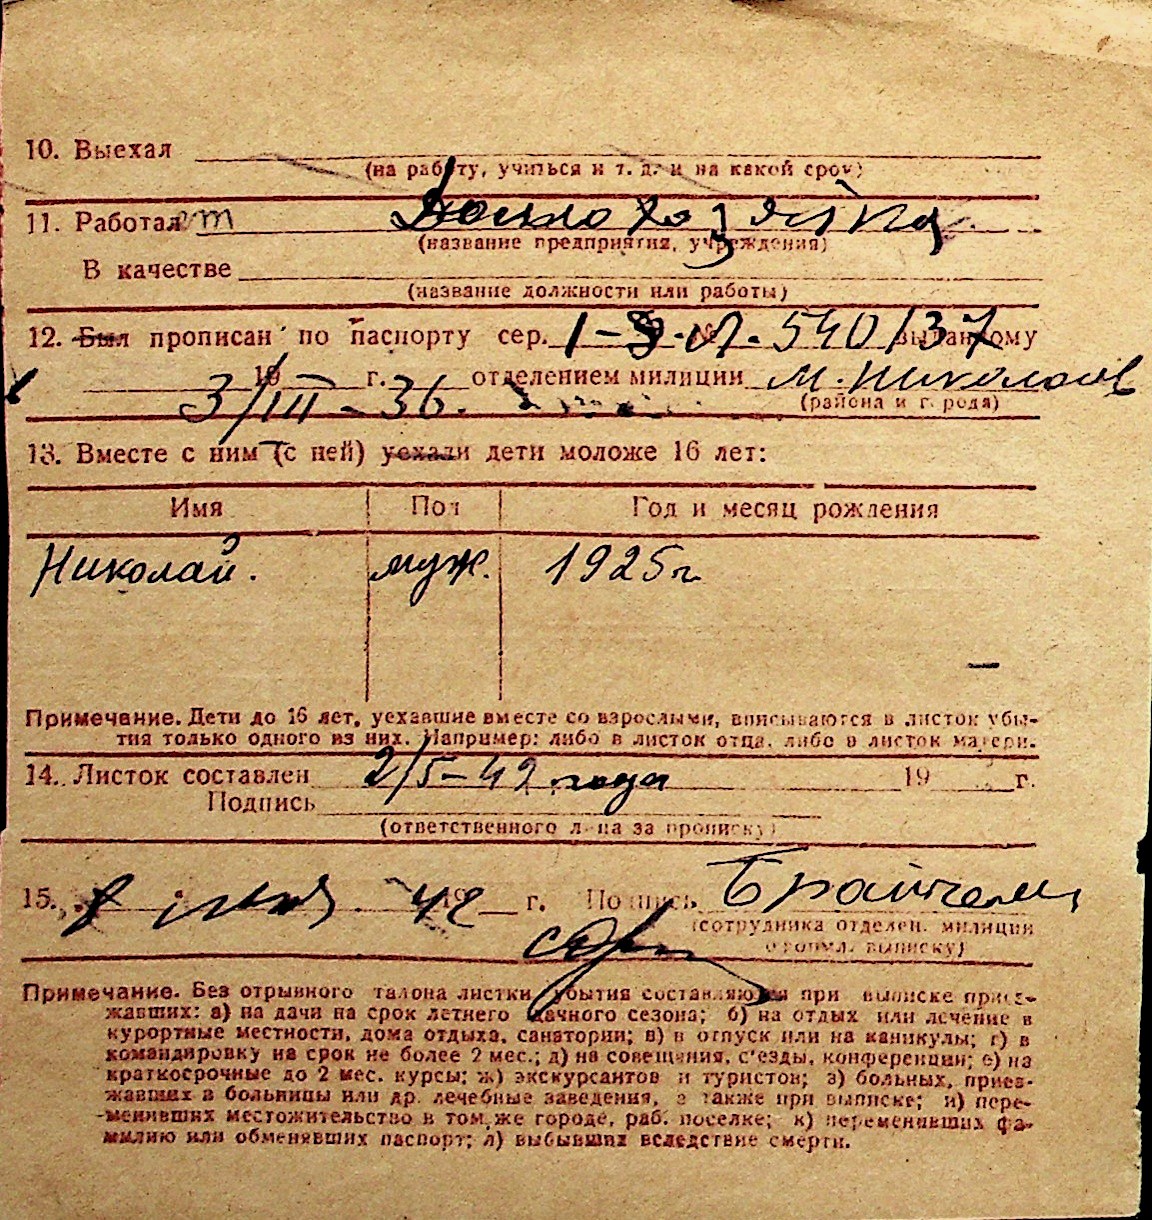 10. Выехал
(на работу, учиться и т. д. и на какой срок)
11. Работает Домохозяйка
(название предприятия, учреждения)
В качестве
(название должности или работы)
12. Был прописан по паспорту сер. № 540137 выданному
3/III-36. 19 г. отделением милиции м. Николаев
(района и города)
13. Вместе с ним (с ней) уехали дети моложе 16 лет:
Имя Пол Год и месяц рождения
Николай. муж. 1925 г
Примечание. Дети до 16 лет, уехавшие вместе со взрослыми, вписываются в листок убы-
тия только одного из них. Например: либо в листок отца, либо в листок матери.
14. Листок составлен 2/5-42 года 19 г.
Подпись
(ответственного лица за прописку)
15. 42 19 г. Подпись
(сотрудника отделен. милиции
оформл. выписку)
Примечание. Без отрывного талона листки убытия составляются при выписке приез-
жавших: а) на дачи на срок летнего дачного сезона; б) на отдых или лечение в
курортные местности, дома отдыха, санатории; в) в отпуск или на каникулы; г) в
командировку на срок не более 2 мес.; д) на совещания, с'езды, конференции; е) на
краткосрочные до 2 мес. курсы; ж) экскурсантов и туристов; з) больных, приез-
жавших в больницы или др. лечебные заведения, а также при выписке; и) пере-
менивших местожительство в том же городе, раб. поселке; к) переменивших фа-
милию или обменявших паспорт; л) выбывших вследствие смерти.